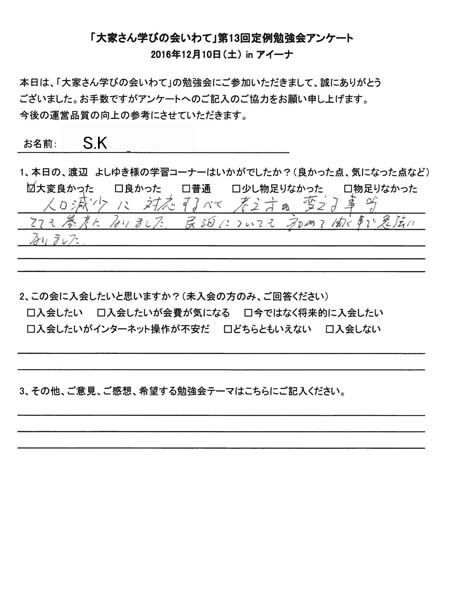 「大家さん学びの会いわて」第13回定例勉強会アンケート
2016年12月10日(土) in アイーナ
本日は、「大家さん学びの会いわて」の勉強会にご参加いただきまして、誠にありがとう
ございました。お手数ですがアンケートへのご記入のご協力をお願い申し上げます。
今後の運営品質の向上の参考にさせていただきます。
お名前: S.K
1、本日の、渡辺 よしゆき様の学習コーナーはいかがでしたか?(良かった点、気になった点など)
☑大変良かった □良かった □普通 □少し物足りなかった □物足りなかった
人口減少に対応するべく考え方を変える事等
とても参考になりました 民泊についても初めて聞く事で勉強に
なりました
2、この会に入会したいと思いますか?(未入会の方のみ、ご回答ください)
□入会したい □入会したいが会費が気になる □今ではなく将来的に入会したい
□入会したいがインターネット操作が不安だ □どちらともいえない □入会しない
3、その他、ご意見、ご感想、希望する勉強会テーマはこちらにご記入ください。